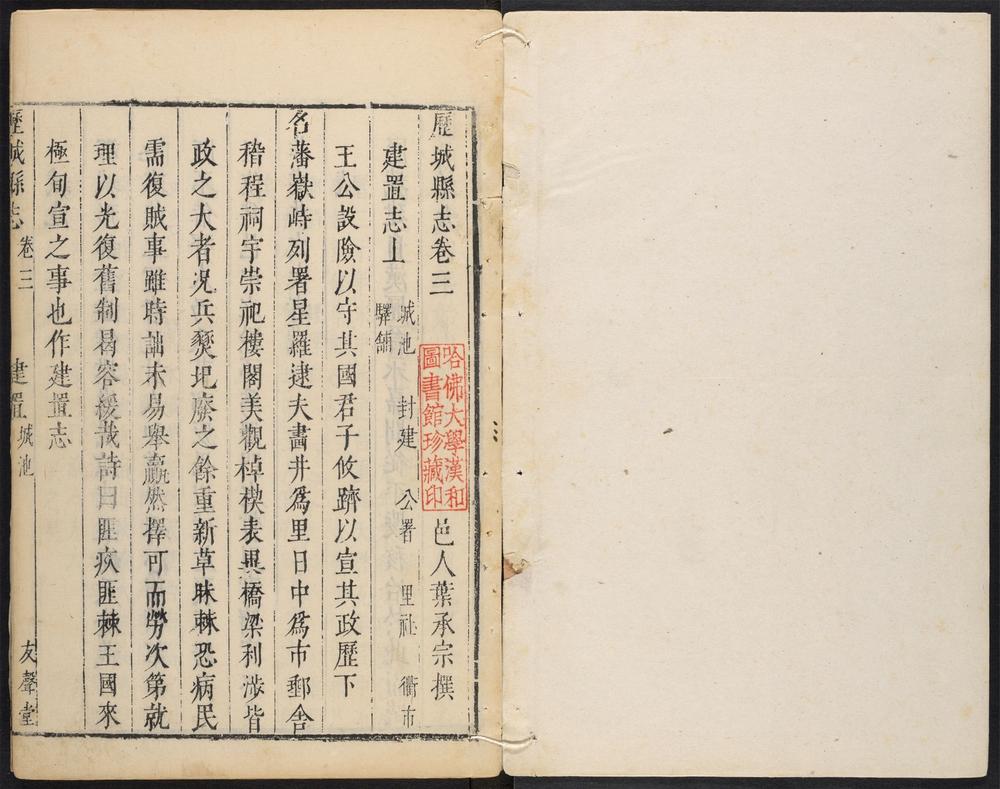 歷城縣志卷三
邑人葉承宗撰
哈佛大學漢和
圖書館珍藏印
建置志上
城池 封建 公署 里社 衢市
驛鋪
王公設險以守其國君子攸躋以宣其政歷下
名藩嶽峙列署星羅逮夫畫井爲里日中爲市郵舍
稽程祠宇崇祀樓閣美觀棹楔表異橋梁利涉皆
政之大者况兵燹圯廢之餘重新草昧棘恐病民
需復賊事雖時詘未易舉羸然擇可而勞次第就
理以光復舊制曷容緩哉詩曰匪疚匪棘王國來
極旬宣之事也作建置志
歷城縣志 卷三 建置 城池 友聲堂